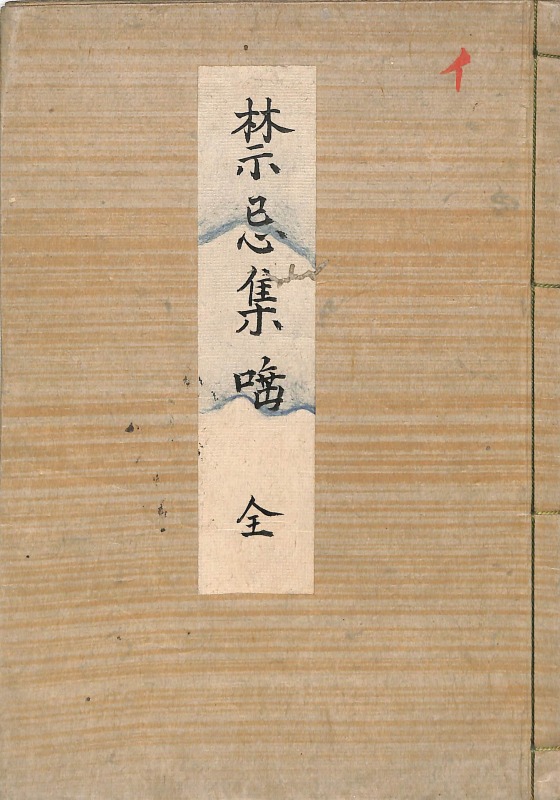 イ
禁忌集
全